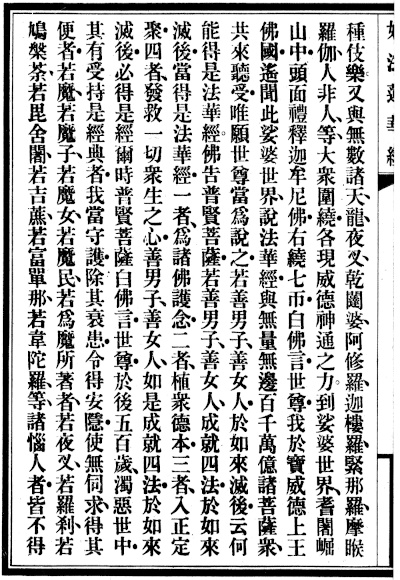 妙法蓮華經
種伎樂又與無數諸天龍夜叉乾闥婆阿修羅迦樓羅緊那羅摩睺
羅伽人非人等大衆圍繞各現威德神通之力到娑婆世界耆闍崛
山中頭面禮釋迦牟尼佛右繞七帀白佛言世尊我於寶威德上王
佛國遙聞此娑婆世界說法華經與無量無邊百千萬億諸菩薩衆
共來聽受唯願世尊當爲說之若善男子善女人於如來滅後云何
能得是法華經佛告普賢菩薩若善男子善女人成就四法於如來
滅後當得是法華經一者爲諸佛護念二者植衆德本三者入正定
聚四者發救一切衆生之心善男子善女人如是成就四法於如來
滅後必得是經爾時普賢菩薩白佛言世尊於後五百歲濁惡世中
其有受持是經典者我當守護除其衰患令得安隱使無伺求得其
便者若魔若魔子若魔女若魔民若爲魔所著者若夜叉若羅刹若
鳩槃荼若毘舍闍若吉蔗若富單那若韋陀羅等諸惱人者皆不得